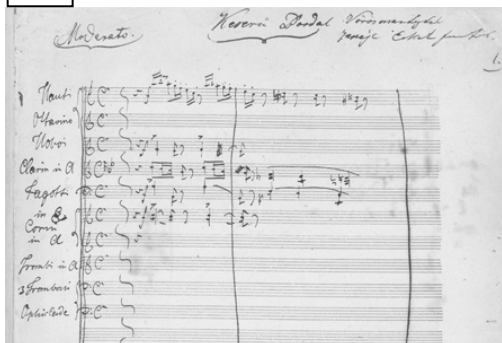 Moderato. Keserű Bordal Vörösmartytól
zenéje Erkel
1.
Flauti
Ottavino
Oboi
Clarin in A
Fagotti
in E
Corni
in A
Trombi in A
3 Tromboni
Ophicleide